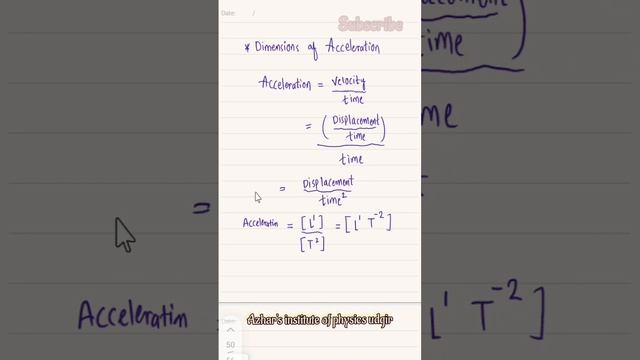 Date: /
Subscribe
* Dimensions of Acceleration
Acceleration = velocity / time
= (Displacement / time) / time
= Displacement / time²
Acceleratin = [L¹] / [T²] = [L¹ T⁻²]
Azhar's institute of physics udgir
50
time
time
me
=
Acceleratin
L¹ T⁻²]